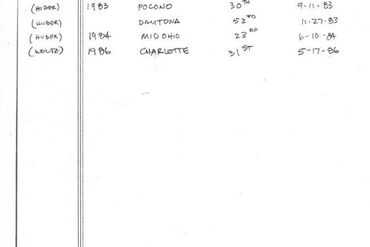 (HUBER) 1983 POCONO 30TH 9-11-83
(HUBER) DAYTONA 52ND 11-27-83
(HUBER) 1984 MID OHIO 23RD 6-10-84
(WOLTZ) 1986 CHARLOTTE 31ST 5-17-86